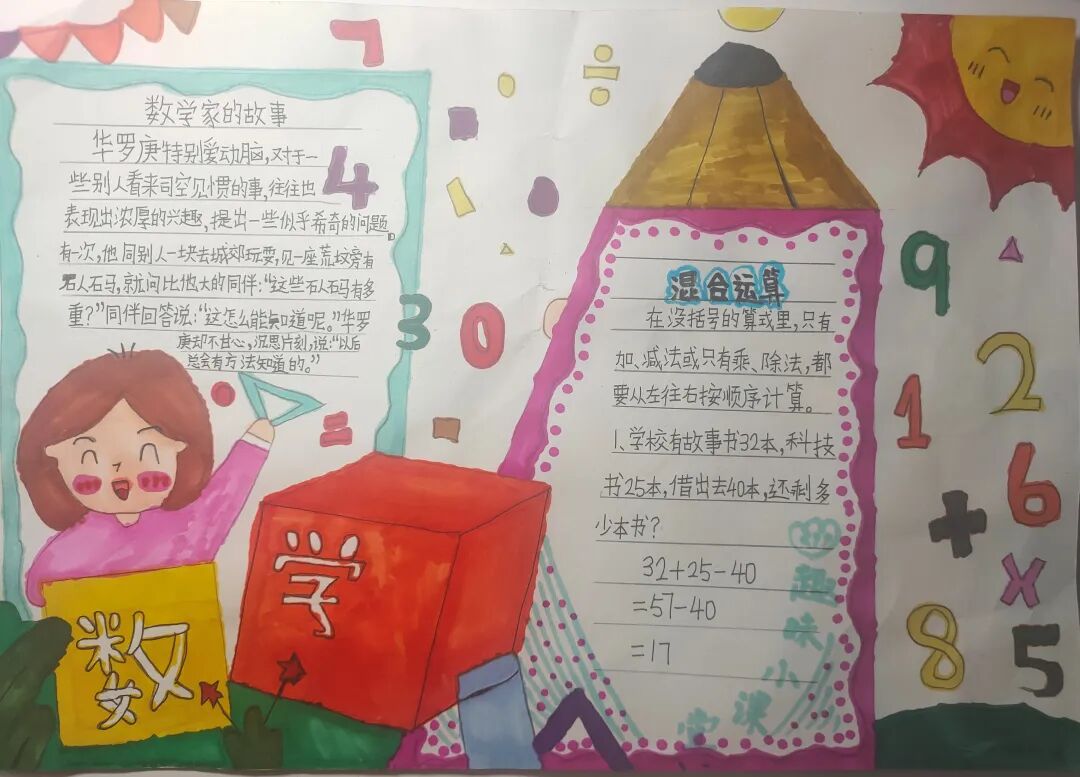 数学家的故事
华罗庚特别爱动脑,对于一
些别人看来司空见惯的事,往往也
表现出浓厚的兴趣,提出一些似乎希奇的问题。
有一次,他同别人一块去城郊玩耍,见一座荒坟旁有
石人石马,就问比他大的同伴:“这些石人石马有多
重?”同伴回答说:“这怎么能知道呢。”华罗
庚却不甘心,沉思片刻,说:“以后
总会有方法知道的。”
数
学
7
÷
4
3
0
=
混合运算
在没括号的算式里,只有
加、减法或只有乘、除法,都
要从左往右按顺序计算。
1、学校有故事书32本,科技
书25本,借出去40本,还剩多
少本书?
32+25-40
=57-40
=17
趣味小
课堂
9
2
1
6
+
x
8
5